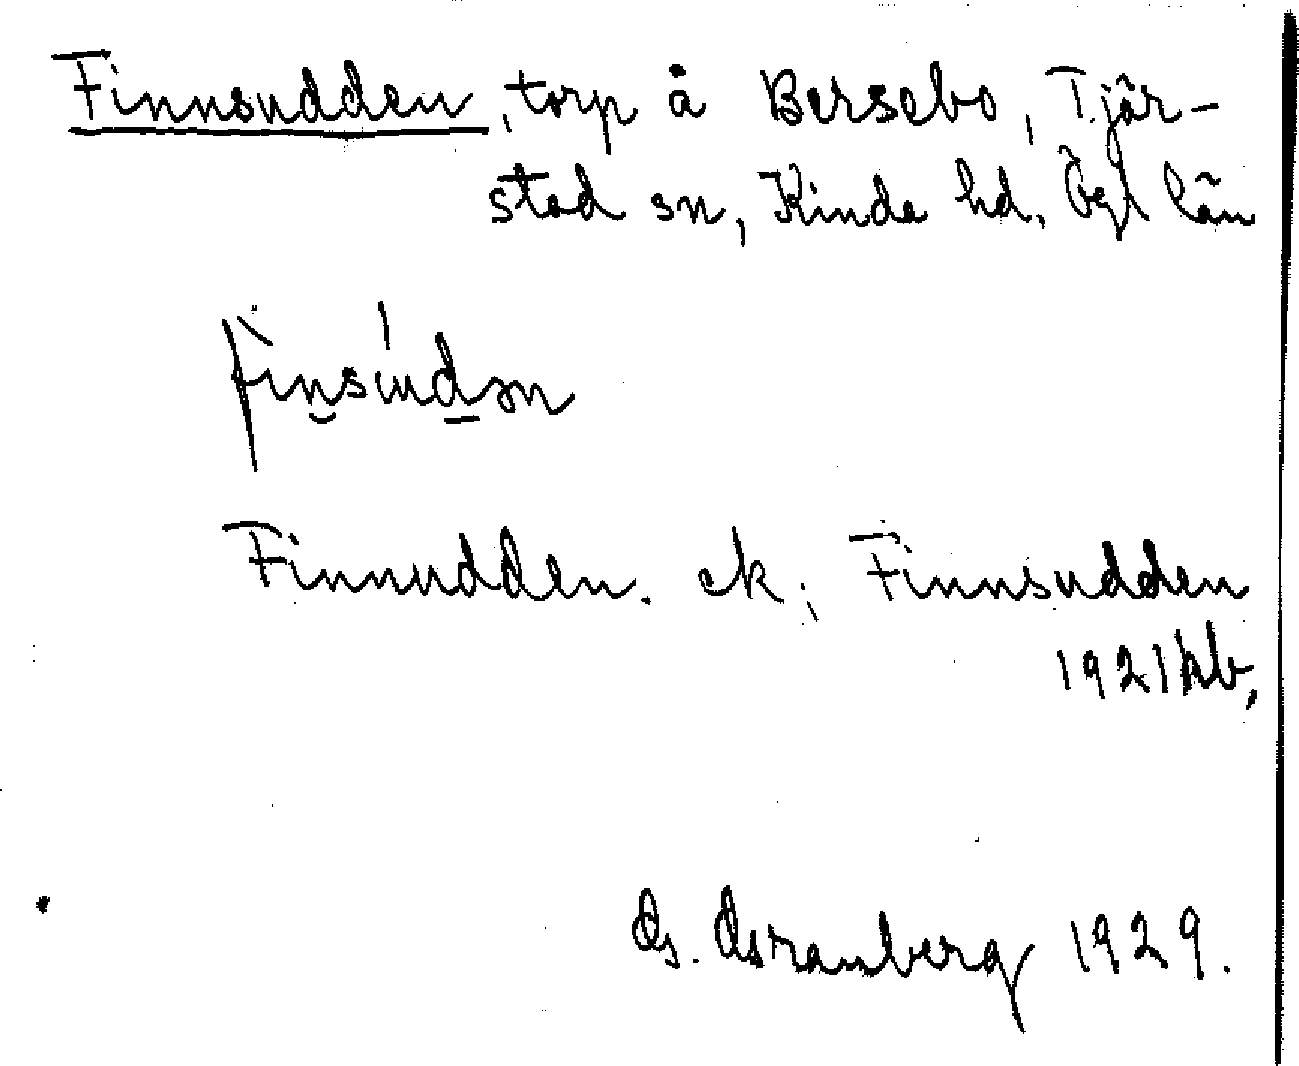 Finnsudden, torp å Bersebo, Tjär-
stad sn, Kinda hd, Ögl län
finsudən
Finnudden. ek; Finnsudden
1921 hb,
G. Granberg 1929.